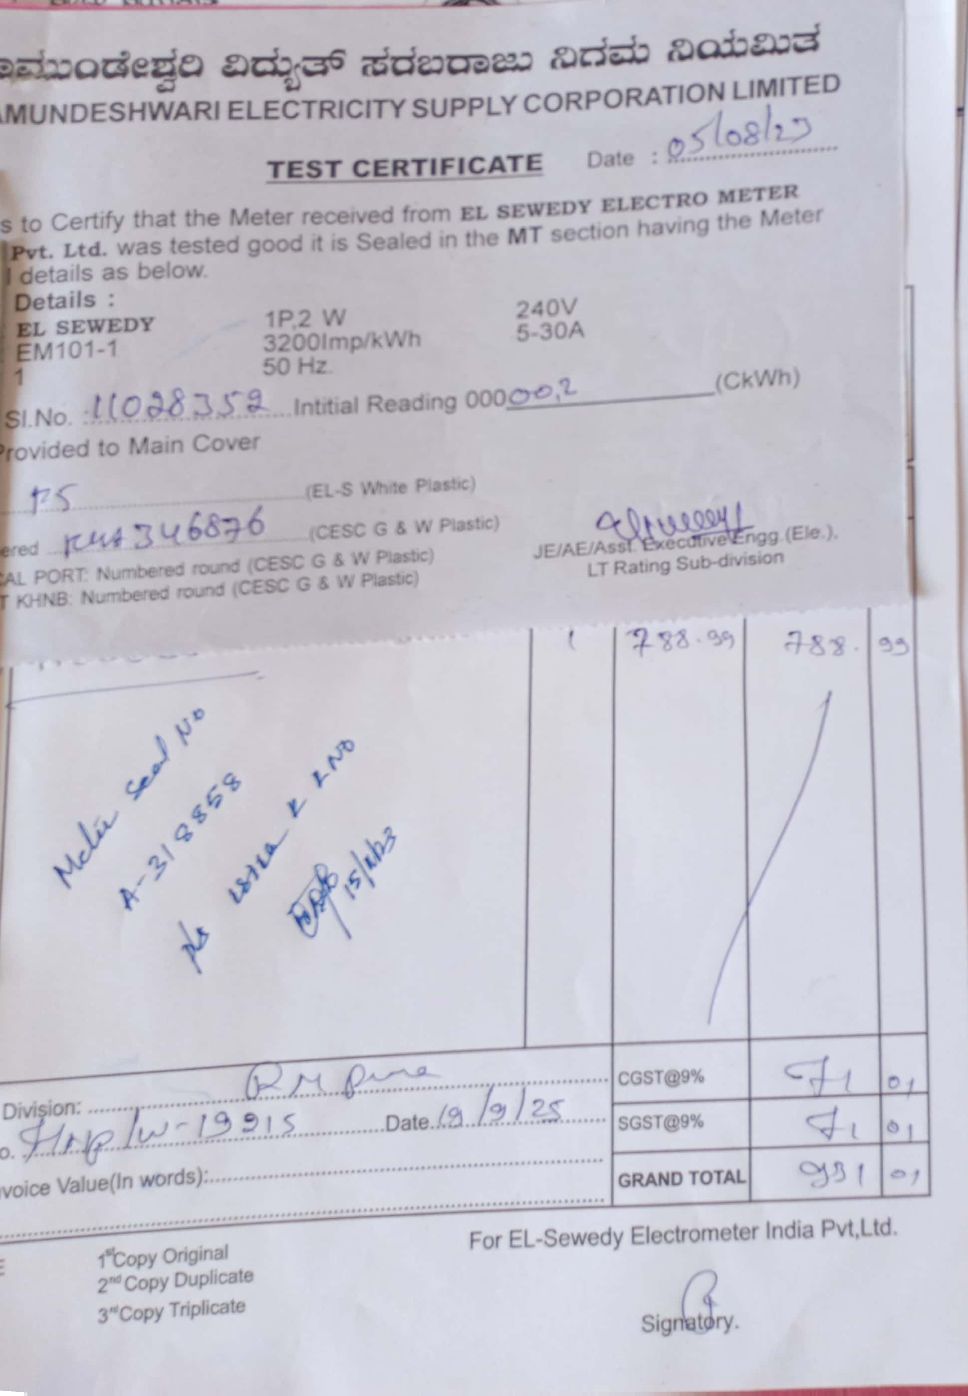 ಾಮುಂಡೇಶ್ವರಿ ವಿದ್ಯುತ್ ಸರಬರಾಜು ನಿಗಮ ನಿಯಮಿತ
AMUNDESHWARI ELECTRICITY SUPPLY CORPORATION LIMITED
TEST CERTIFICATE Date : 05/08/23
s to Certify that the Meter received from EL SEWEDY ELECTRO METER
Pvt. Ltd. was tested good it is Sealed in the MT section having the Meter
l details as below.
Details :
EL SEWEDY 1P,2 W 240V
EM101-1 3200Imp/kWh 5-30A
1 50 Hz.
Sl.No. 11028352 Intitial Reading 000 00,2 (CkWh)
Provided to Main Cover
(EL-S White Plastic)
ered 346876 (CESC G & W Plastic)
CAL PORT: Numbered round (CESC G & W Plastic)
T KHNB: Numbered round (CESC G & W Plastic)
JE/AE/Asst. Executive Engg.(Ele.),
LT Rating Sub-division
1 788.99 788. 99
Meter Seal No
A-318858
15/11/23
Division: CGST@9% 71 01
o. 19915 Date 19/9/25 SGST@9% 71 01
nvoice Value(In words): GRAND TOTAL 931 01
For EL-Sewedy Electrometer India Pvt,Ltd.
1st Copy Original
2nd Copy Duplicate
3rd Copy Triplicate
Signatory.